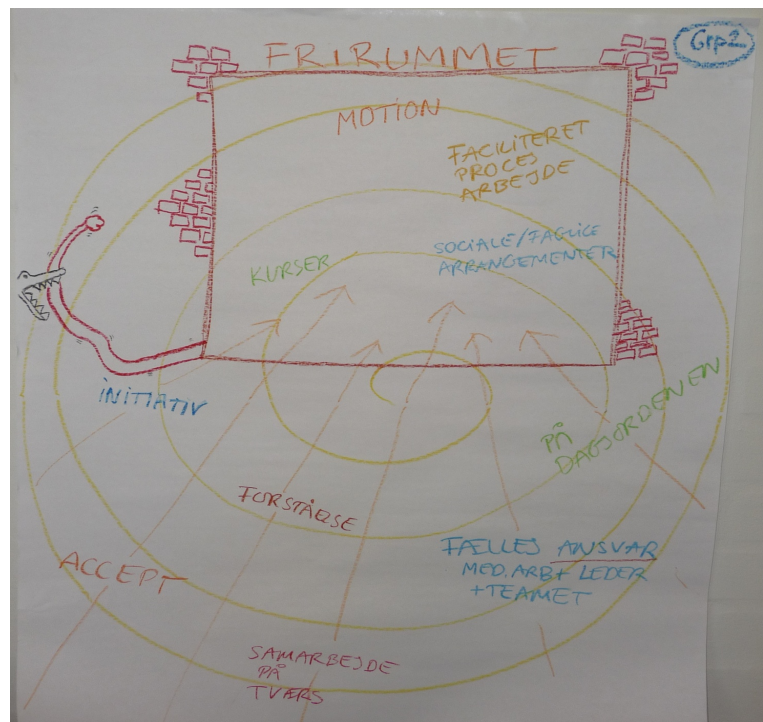 Grp2
FRIRUMMET
MOTION
FACILITERET
PROCES
ARBEJDE
SOCIALE/FAGLIGE
ARRANGEMENTER
KURSER
INITIATIV
PÅ
DAGSORDENEN
FORSTÅELSE
FÆLLES ANSVAR
MED.ARB+ LEDER
+TEAMET
ACCEPT
SAMARBEJDE
PÅ
TVÆRS